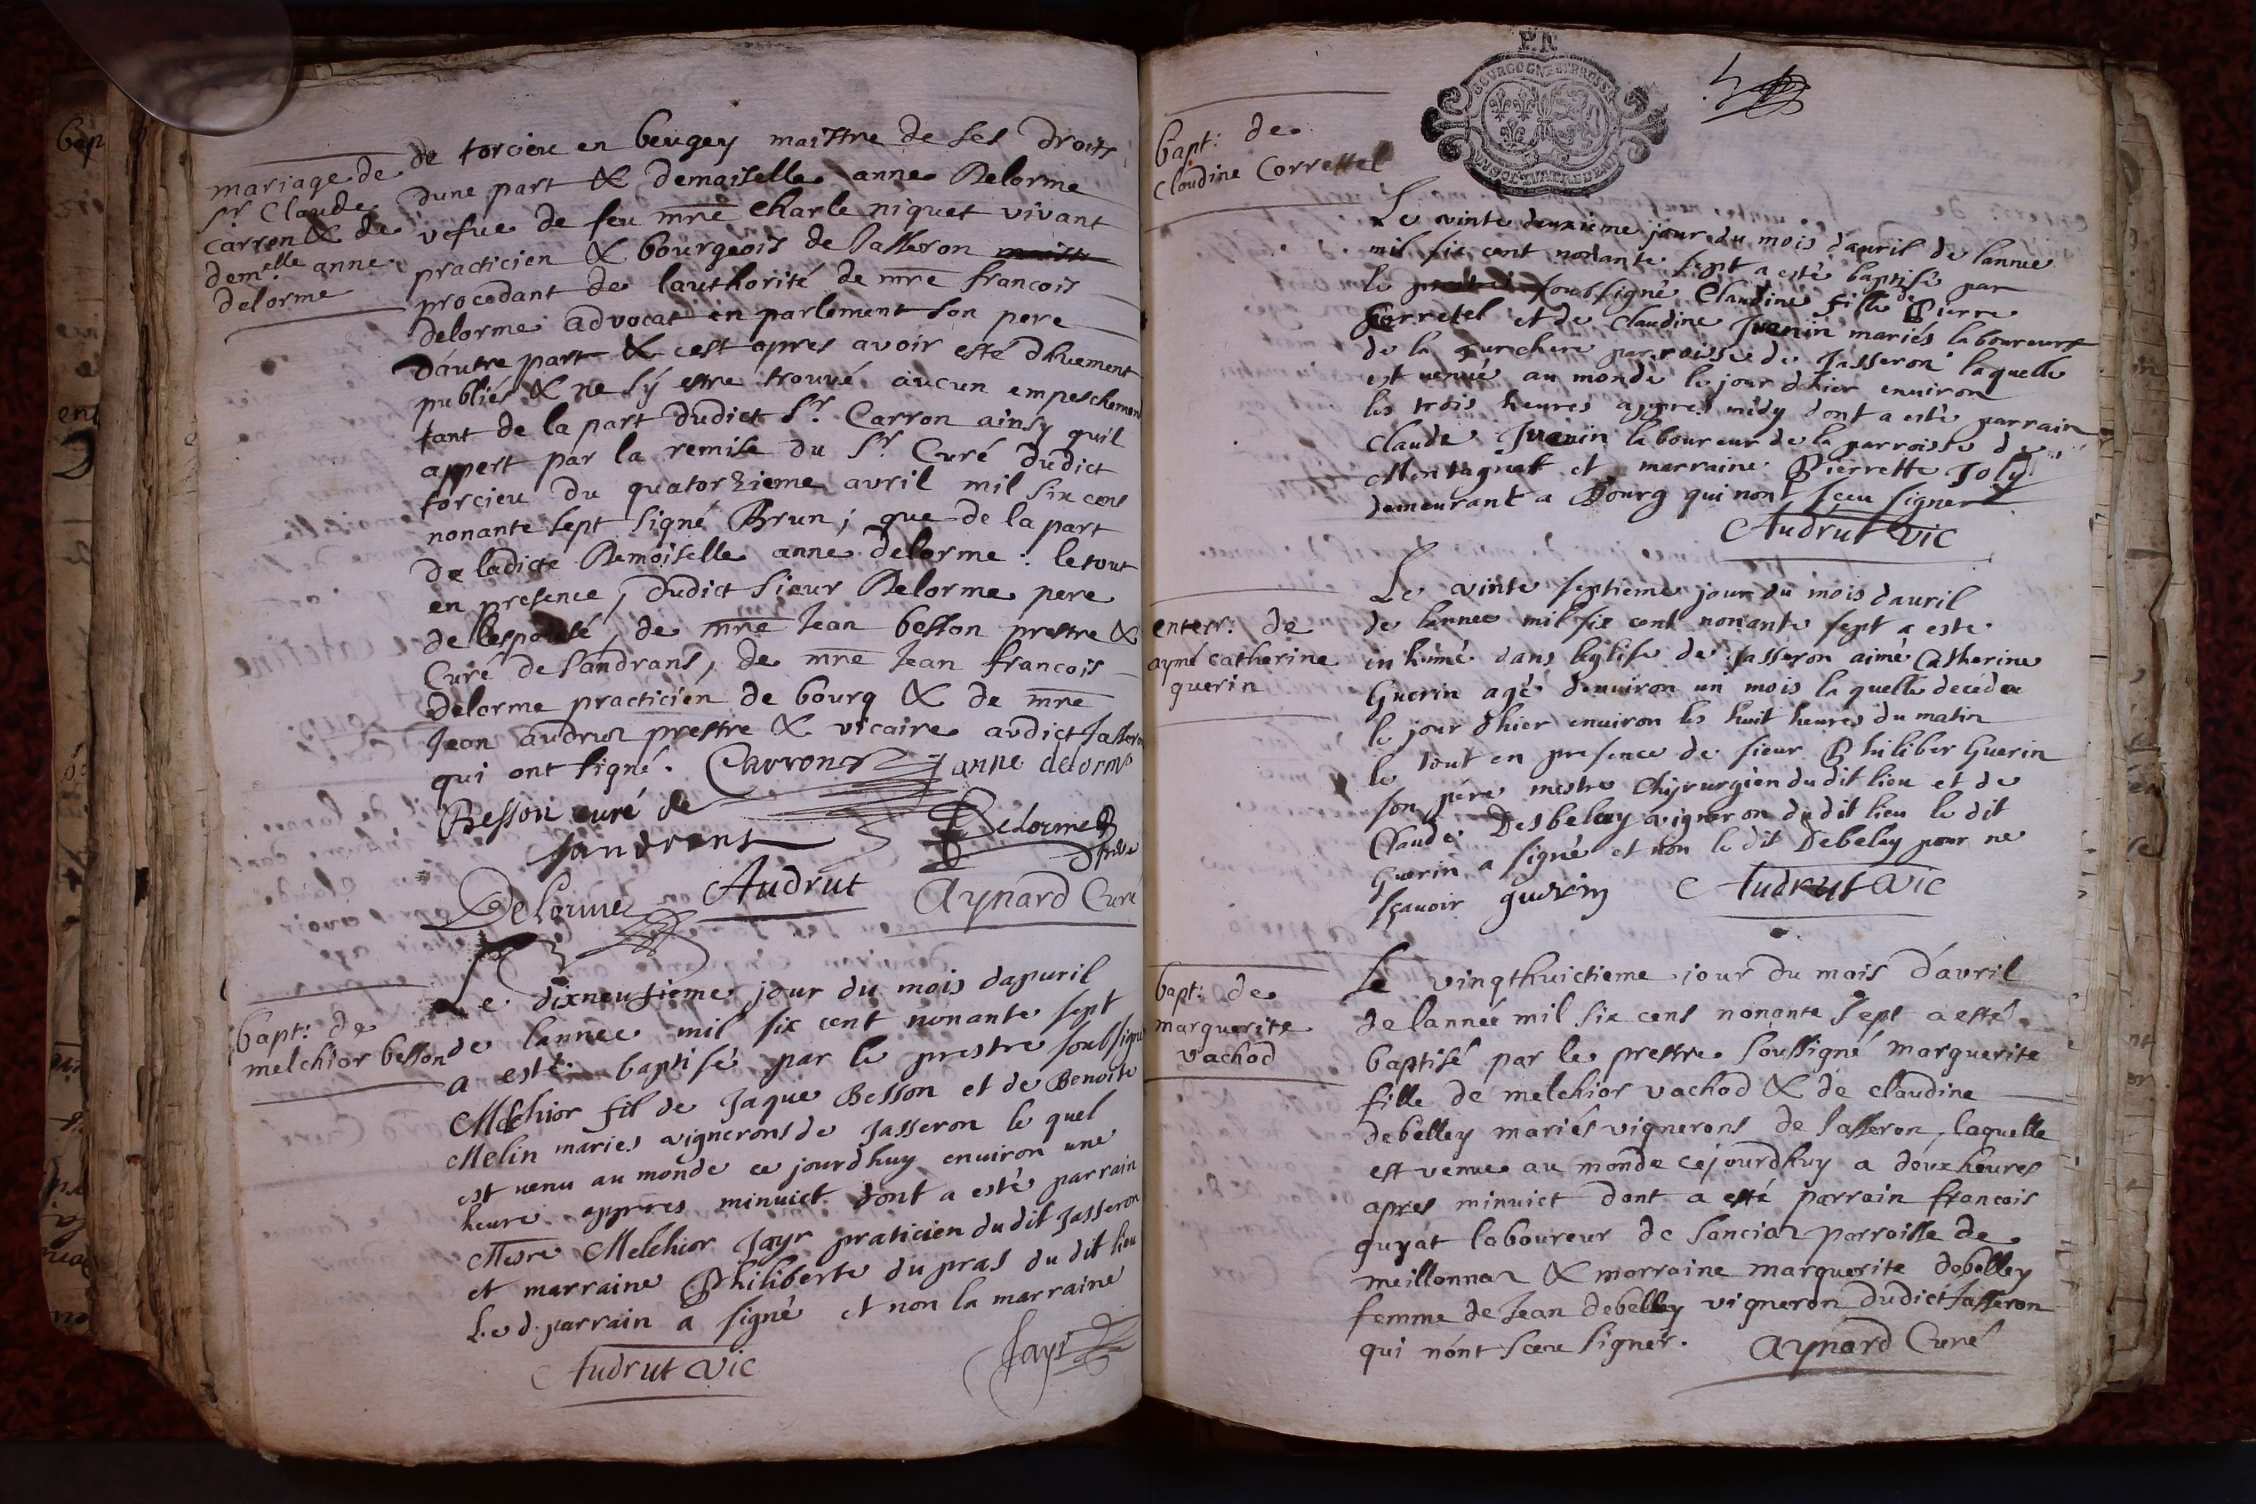 mariage de
Sr. Claude
Carron & de
demelle anne
delorme
de torcieu en beugey maistre de ses droits
dune part & demaiselle anne Delorme
vefue de feu mre charle niquet vivant
practicien & bourgeois de Jasseron
procedant de lauthorité de mre francois
delorme advocat en parlement son pere
dautre part & cest apres avoir esté dhuement
publiés & ne sÿ estre trouvé aucun empeschement
tant de la part dudict Sr. Carron ainsy quil
appert par la remise du Sr Curé dudict
torcieu du quatorzieme avril mil six cens
nonante sept signé Brun ; que de la part
de ladicte Demoiselle anne delorme : le tout
en presence, dudict sieur Delorme pere
de lespousé, de mre Jean besson prestre &
Curé de sandrans, de mre Jean francois
delorme practicien de bourg & de mre
Jean audruz prestre & vicaire audict Jasseron
qui ont signé. Carron anne delorme
Besson curé de
sandrens
Delorme
Delorme Audrut Aynard Curé
bapt: de
melchior besson
Le dixneufieme jour du mois dapuril
de lannee mil six cent nonante sept
a esté baptisé par le prestre soubsigné
Melchior fil de Jaque Besson et de Benoite
Melin maries vignerons de Jasseron le quel
est venu au monde ce jourdhuy environ une
heure appres minuict dont a esté parrain
Mre Melchior Jayr praticien du dit Jasseron
et marraine Philiberte du pras du dit lieu
Le d. parrain a signé et non la marraine
Audrut vic Jayr
bapt: de
Claudine Correttel
Le vinte deuxieme jour du mois dauril de lannee
mil six cent nonante sept a esté baptisé par
le soubsigné Claudine fille de Pierre
Correttel et de Claudine Juenin mariés laboureurs
de la parroisse de Jasseron laquelle
est venue au monde le jour dhier enuiron
les trois heures appres midy dont a esté parrain
Claude Juenin laboureur de la parroisse de
Montagnat et marraine Pierrette Joly
demeurant a Bourg qui nont sceu signer
Audrut vic
enterr: de
aymé catherine
guerin
Le vinte septieme jour du mois dauril
de lannee mil six cent nonante sept a esté
inhumé dans leglise de Jasseron aimé Catherine
Guerin agé denuiron un mois la quelle décéda
le jour dhier enuiron les huit heures du matin
le tout en presence de sieur Philiber Guerin
son père mestre Chyrurgien du dit lieu et de
Claude Desbeley vigneron du dit lieu le dit
Guerin a signé et non le dit Debeley pour ne
sçauoir guerin Audrut vic
bapt: de
marguerite
vachod
Le vingthuictieme jour du mois d'avril
de lannée mil six cens nonante sept a esté
baptisé par le prestre soussigné marguerite
fille de melchior vachod & de claudine
debelley mariés vignerons de Jasseron, laquelle
est venue au monde cejourdhuy a deux heures
apres minuict dont a esté parrain francois
guyat laboureur de sanciaz parroisse de
meillonnaz & marraine marguerite debelley
femme de Jean debelley vigneron dudict Jasseron
qui nónt sceu signer. Aynard Curé